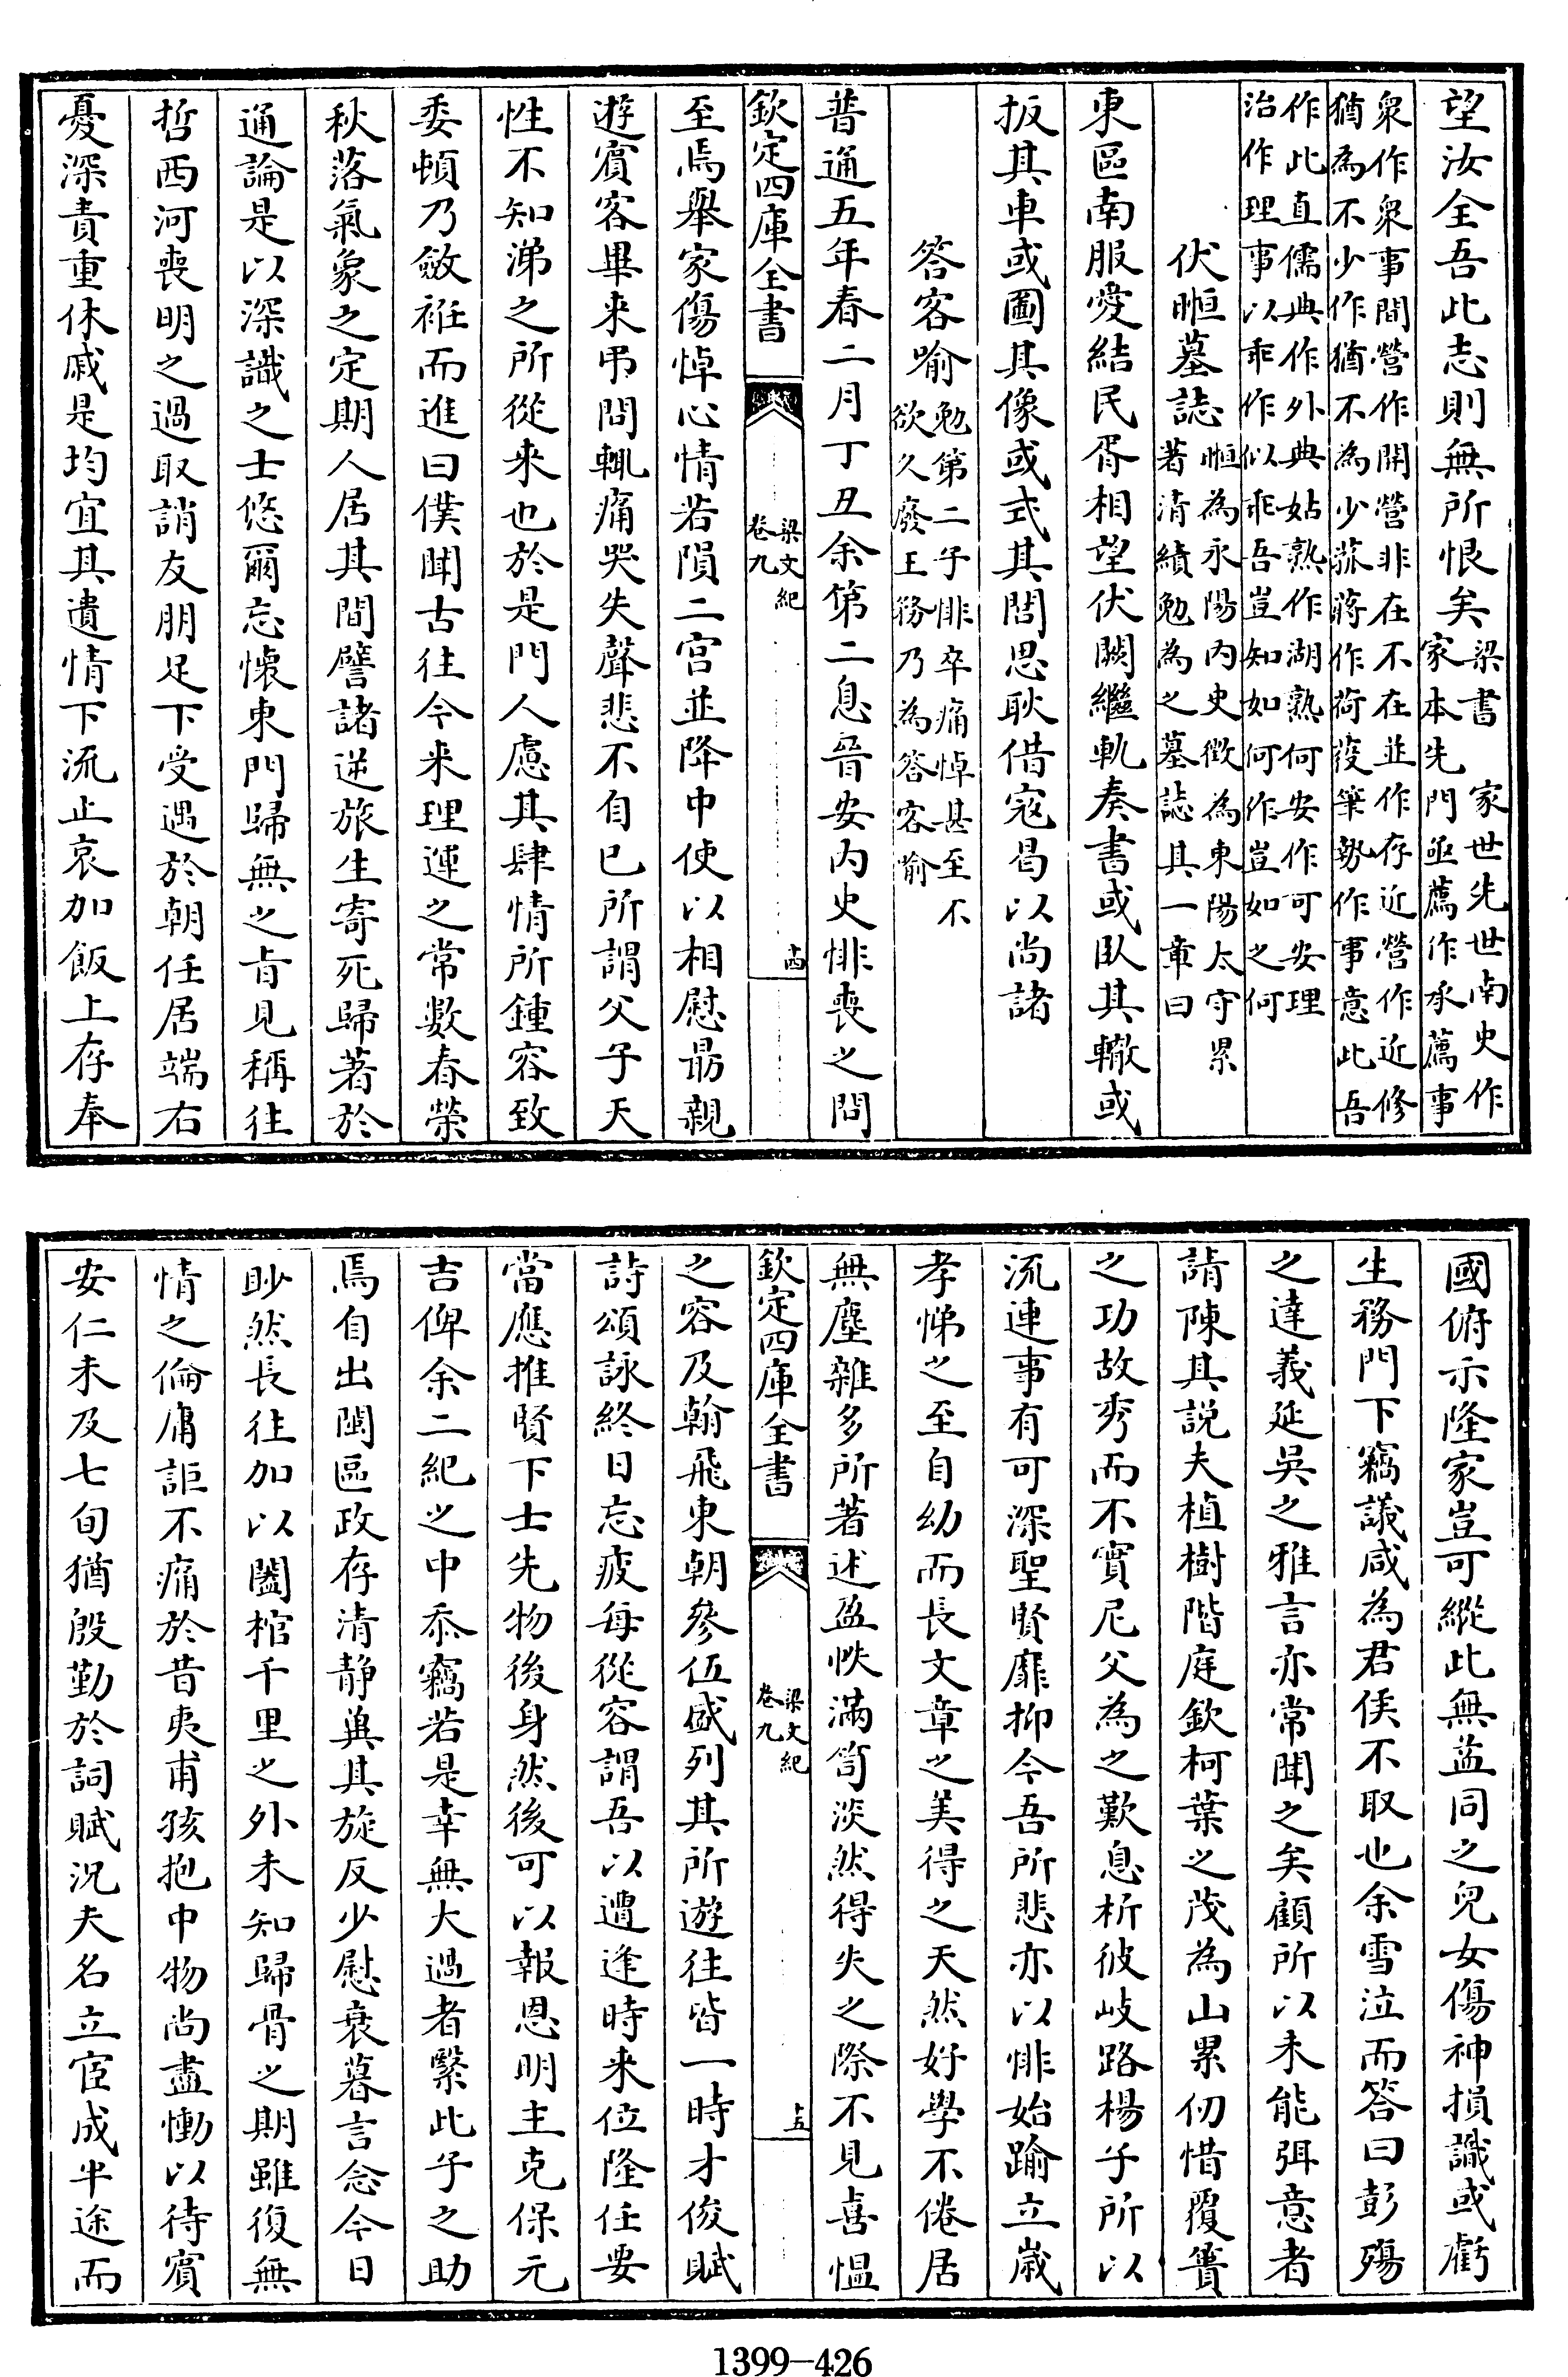 望汝全吾此志則無所恨矣梁書家世先世南史作家本先門亟薦作承薦事
衆作衆事間營作開營非在不在並作存近營作近修猶為不少作猶不為少菻蔣作荷葭筆勢作事意此吾
作此直儒典作外典姑熟作湖熟何安作可安理治作理事以乖作似乖吾豈知如何作豈如之何
伏暅墓誌暅為永陽内史徴為東陽太守累著清績勉為之墓誌其一章曰
東區南服愛結民胥相望伏闕繼軌奏書或臥其轍或
扳其車或圖其像或式其閭思耿借宼曷以尚諸
答客喻勉第二子悱卒痛悼甚至不欲久廢王務乃為答客喻
普通五年春二月丁丑余第二息晉安内史悱喪之問
欽定四庫全書
梁文紀
卷九
十四
至焉舉家傷悼心情若隕二宫並降中使以相慰勗親
遊賓客畢来弔問輒痛哭失聲悲不自已所謂父子天
性不知涕之所從来也於是門人慮其肆情所鍾容致
委頓乃斂袵而進曰僕聞古往今来理運之常數春榮
秋落氣象之定期人居其間譬諸逆旅生寄死歸著於
通論是以深識之士悠爾忘懐東門歸無之㫖見稱往
哲西河喪明之過取誚友朋足下受遇於朝任居端右
憂深責重休戚是均宜其遺情下流止哀加飯上存奉
國俯示隆家豈可縱此無益同之兒女傷神損識或虧
生務門下竊議咸為君侯不取也余雪泣而答曰彭殤
之達義延吳之雅言亦常聞之矣顧所以未能弭意者
請陳其說夫植樹階庭欽柯葉之茂為山累仞惜覆簣
之功故秀而不實尼父為之歎息析彼岐路楊子所以
流連事有可深聖賢靡抑今吾所悲亦以悱始踰立嵗
孝悌之至自幼而長文章之美得之天然好學不倦居
無塵雜多所著述盈帙滿笥淡然得失之際不見喜愠
欽定四庫全書
梁文紀
卷九
十五
之容及翰飛東朝參伍盛列其所遊往皆一時才俊賦
詩頌詠終日忘疲每從容謂吾以遭逢時来位隆任要
當應推賢下士先物後身然後可以報恩明主克保元
吉俾余二紀之中忝竊若是幸無大過者繄此子之助
焉自出閩區政存清静冀其旋反少慰衰暮言念今日
眇然長往加以闔棺千里之外未知歸骨之期雖復無
情之倫庸詎不痛於昔夷甫孩抱中物尚盡慟以待賓
安仁未及七旬猶殷勤於詞賦況夫名立宦成半途而
1399—426